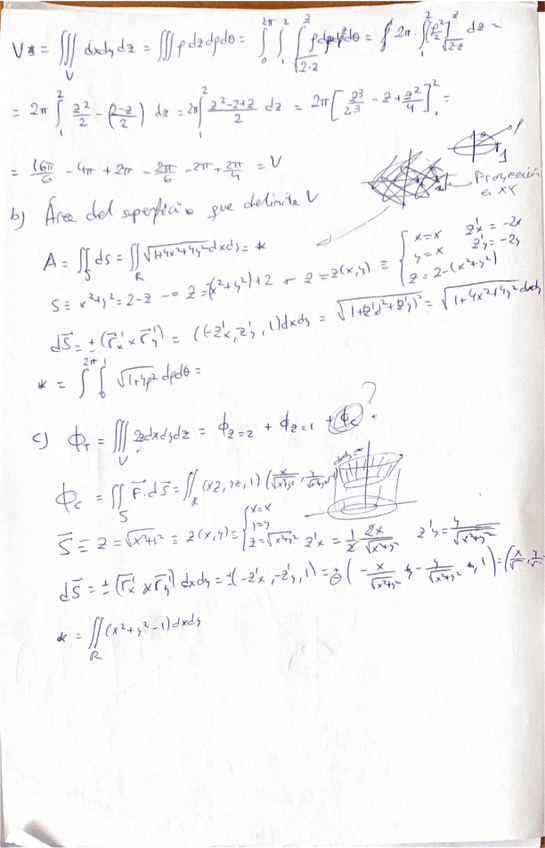 V = ∭_V dxdydz = ∭ ρ dz dρ dθ = ∫_0^{2π} ∫_1^2 ∫_{√(2-z)}^z ρ dρ dz dθ = 2π · ∫_1^2 [ρ²/2]_{√(2-z)}^z dz =
= 2π ∫_1^2 z²/2 - (2-z/2) dz = 2π ∫_1^2 (z²-2+z)/2 dz = 2π [z³/(2·3) - z + z²/4]_1^2 =
= 16π/6 - 4π + 2π - 2π/6 - 2π + 2π/4 = V
Proyección
en XY
b) Área del superficie que delimita V
A = ∬_S ds = ∬_R √(1+4x²+4y²) dxdy = *
S ≡ x²+y² = 2-z → z = -(x²+y²)+2 → z = z(x,y) ≡ { x=x y=x z=2-(x²+y²) z'x = -2x z'y = -2y
dS = ± (r'x × r'y) = (-z'x, z'y, 1) dxdy = √(1+(z'x)²+(z'y)²) = √(1+4x²+4y²) dxdy
* = ∫_0^{2π} ∫_0^1 √(1+4ρ²) dρ dθ =
c) ϕ_T = ∭_V 2z dxdydz = ϕ_{z=2} + ϕ_{z=1} + ϕ_c ?
ϕ_c = ∬_S F · dS = ∬_R (xz, yz, 1) (x/√(x²+y²), y/√(x²+y²), -1)
S ≡ z = √(x²+y²) ≡ z(x,y) = { x=x y=y z=√(x²+y²) z'x = 1/2 2x/√(x²+y²) z'y = y/√(x²+y²)
dS = ± (r'x × r'y) dxdy = ± (-z'x, -z'y, 1) = ± (-x/√(x²+y²), -y/√(x²+y²), 1) = (x/√, y/√
* = ∬_R (x²+y²-1) dxdy